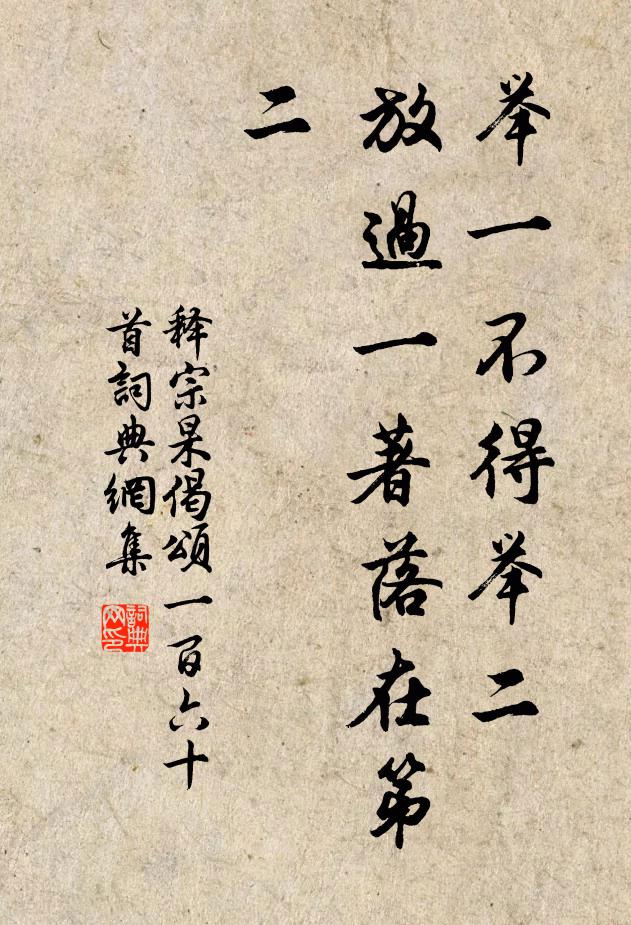 举一不得举二
放過一著落在第
二
释宗杲偈頌一百六十
首詞典網集
詞典网印